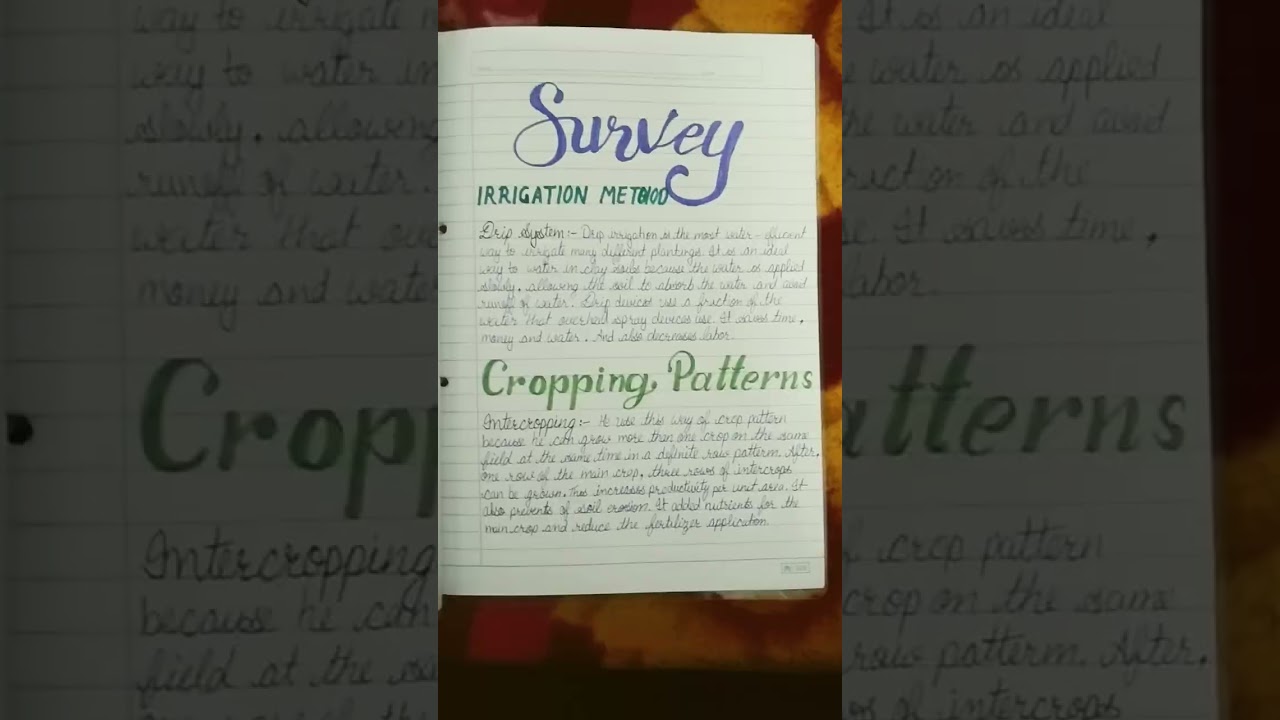 Survey
IRRIGATION METHOD
Drip System:- Drip irrigation is the most water-efficient
way to irrigate many different plantings. It is an ideal
way to water in clay soils because the water is applied
slowly, allowing the soil to absorb the water and avoid
runoff of water. Drip devices use a friction of the
water that overhead spray devices use. It saves time,
money and water. And also decreases labor.
Cropping Patterns
Intercropping:- He use this way of crop pattern
because he can grow more than one crop on the same
field at the same time in a definite row pattern. After,
one row of the main crop, three rows of intercrops
can be grown. This increases productivity per unit area. It
also prevents of soil erosion. It added nutrients for the
main crop and reduce the fertilizer application.